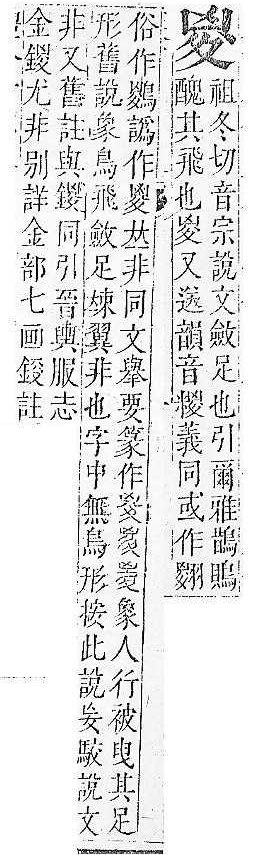 㚇
祖冬切音宗說文斂足也引爾雅鵲鵙
醜其飛也㚇又送韻音糉義同或作翪
俗作譌作㚇𠀤非同文舉要篆作象人行被曳其足
形舊說象鳥飛斂足竦翼非也字中無鳥形按此說妄駁說文
非又舊註與鍐同引晉輿服志
金鍐尤非別詳金部七画鍐註